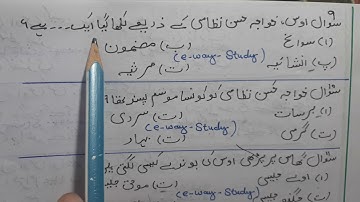 9
سوال اوس، خواجہ حسن نظامی کے ذریعے لکھا گیا ایک --- ہے ؟
(۱) سوانح (ب) مضمون
(e-way-Study)
(پ) انشائیہ (ت) مرثیہ
سوال خواجہ حسن نظامی کو کونسا موسم پسند تھا ؟
(۱) برسات (ب) سردی
(e-way-Study)
(پ) گرمی (ت) بہار
سوال گھاس پر پڑی اوس کی بوندیں کیسی لگتی ہیں
(۱) اولے جیسی (ب) موتی جیسی
(پ) جگنو جیسی (ت)